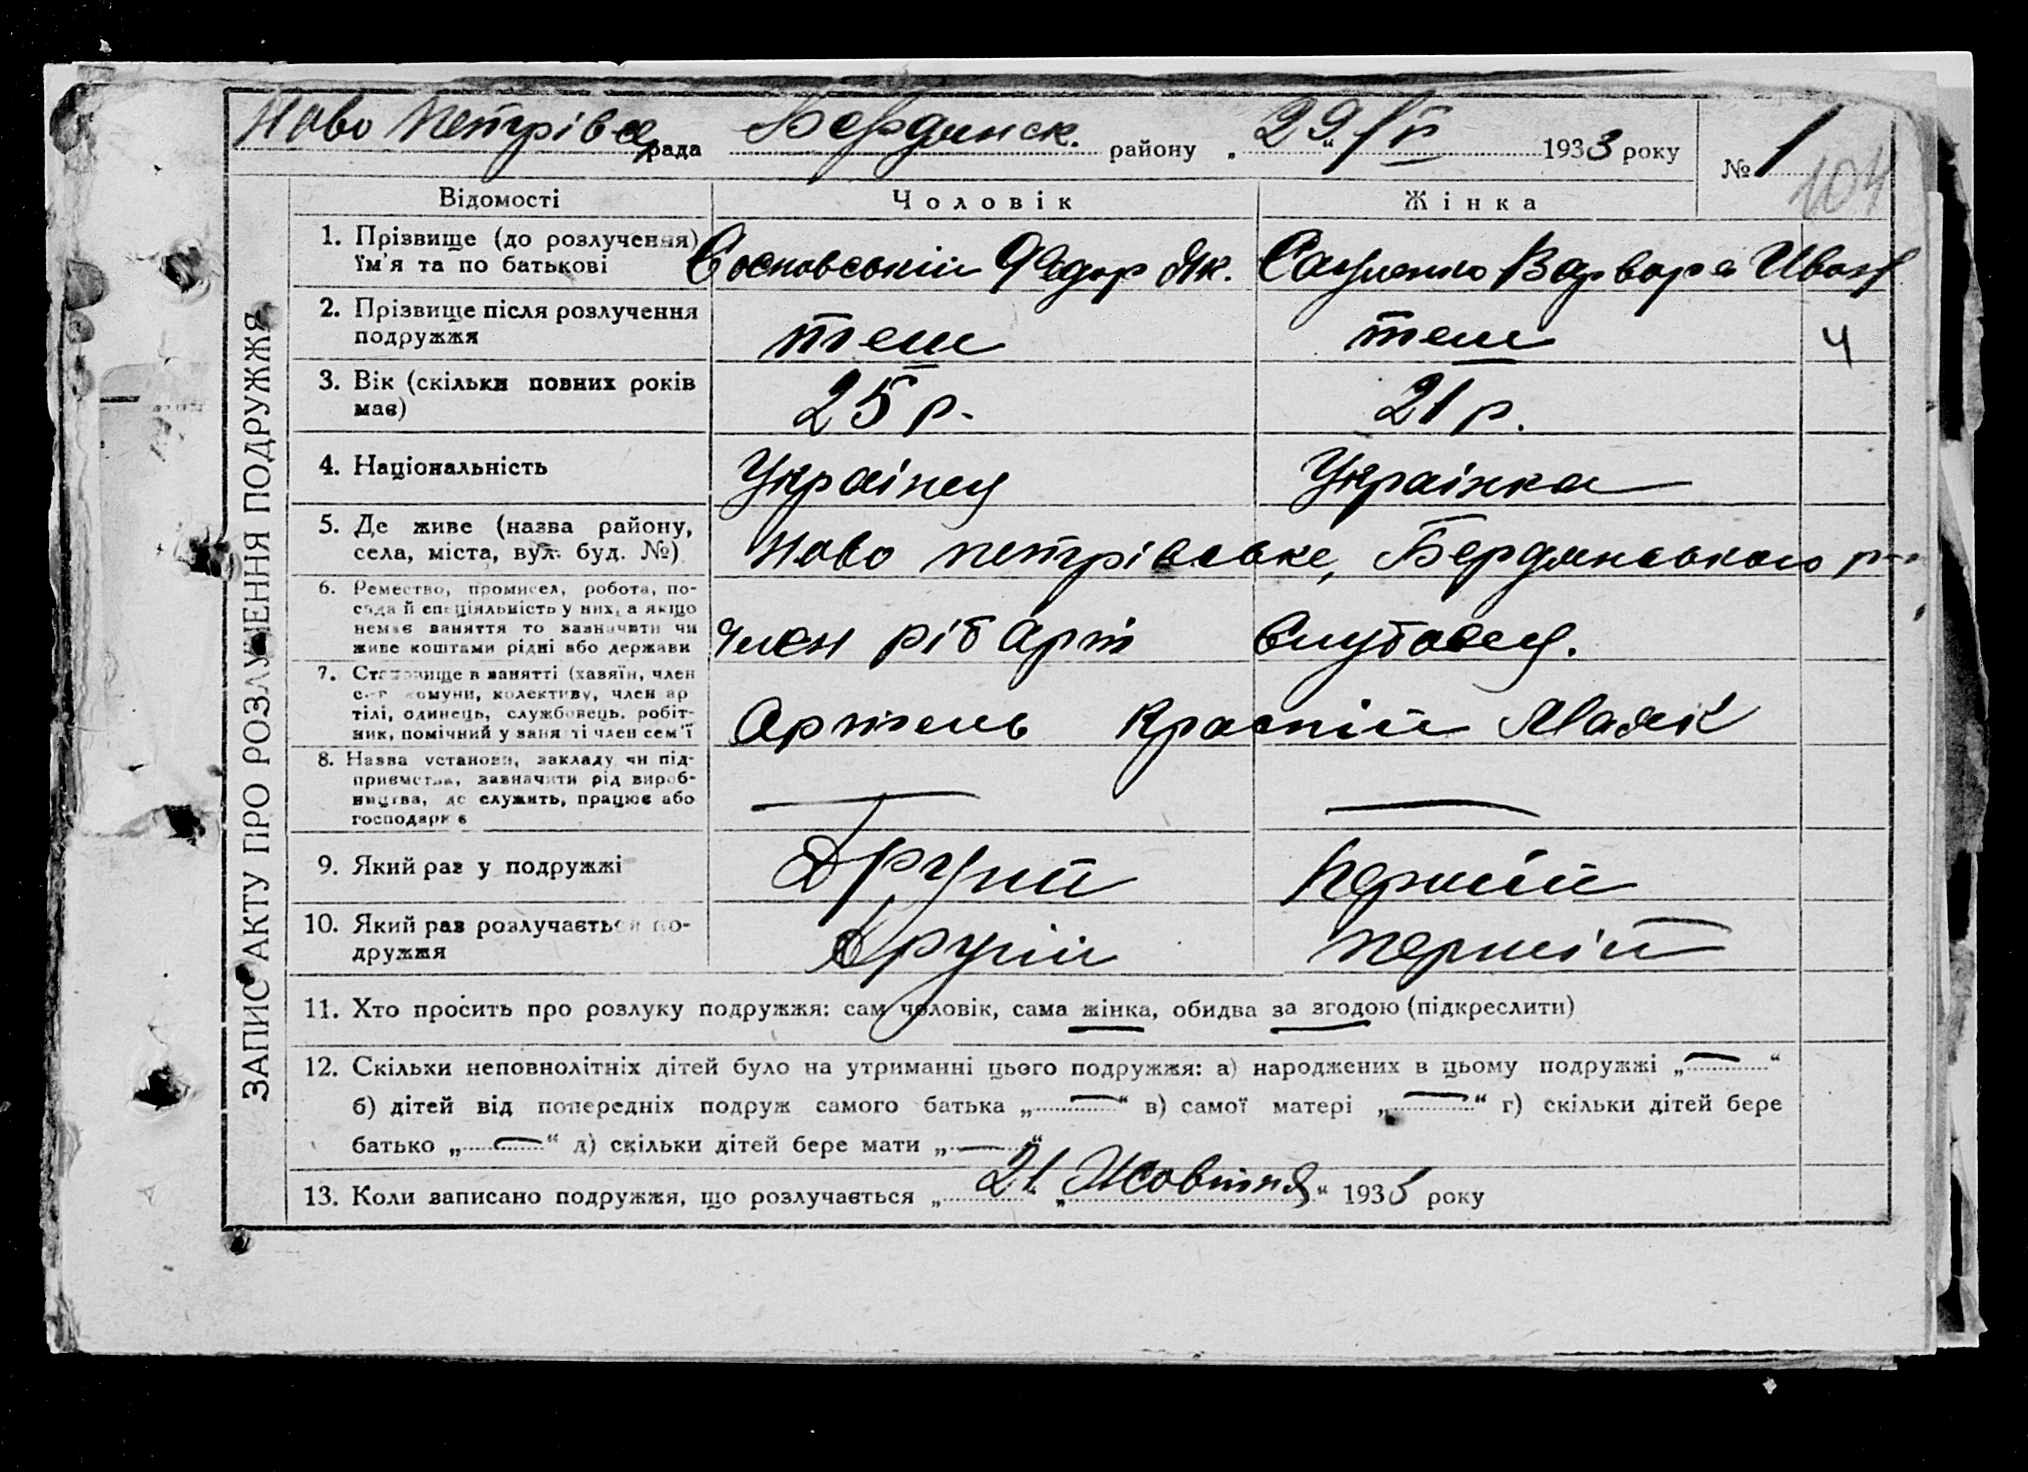 Ново Петрівс рада Бердянск. району „29“ IV 1933 року № 1
104
Відомості Чоловік Жінка
1. Прізвище (до розлучення) Сосновський Федор Як. Сауленко Варвара Иван
їм'я та по батькові
2. Прізвище після розлучення теж теж 4
подружжя
3. Вік (скільки повних років 25 р. 21 р.
має)
4. Національність Українец Українка
5. Де живе (назва району, Ново петрівське, Бердянського р-н
села, міста, вул. буд. №)
6. Ремество, промисел, робота, по- член ріб арт Службовец.
сада й спеціяльність у них, а якщо
немає заняття то зазначити чи
живе коштами рідні або держави
7. Становище в занятті (хазяїн, член Артель Красній Маяк
с-г комуни, колективу, член ар
тілі, одинець, службовець, робіт-
ник, помічний у занятті член сем'ї
8. Назва установи, закладу чи під-
приємства, зазначити рід вироб-
ництва, де служить, працює або
господарює
9. Який раз у подружжі Другий Першій
10. Який раз розлучається по- Другій першій
дружжя
11. Хто просить про розлуку подружжя: сам чоловік, сама жінка, обидва за згодою (підкреслити)
12. Скільки неповнолітніх дітей було на утриманні цього подружжя: а) народжених в цьому подружжі „—“
б) дітей від попередніх подруж самого батька „—“ в) самої матері „—“ г) скільки дітей бере
батько „—“ д) скільки дітей бере мати „—“
13. Коли записано подружжя, що розлучається „21 „Жовтня“ 1933 року
ЗАПИС АКТУ ПРО РОЗЛУЧЕННЯ ПОДРУЖЖЯ